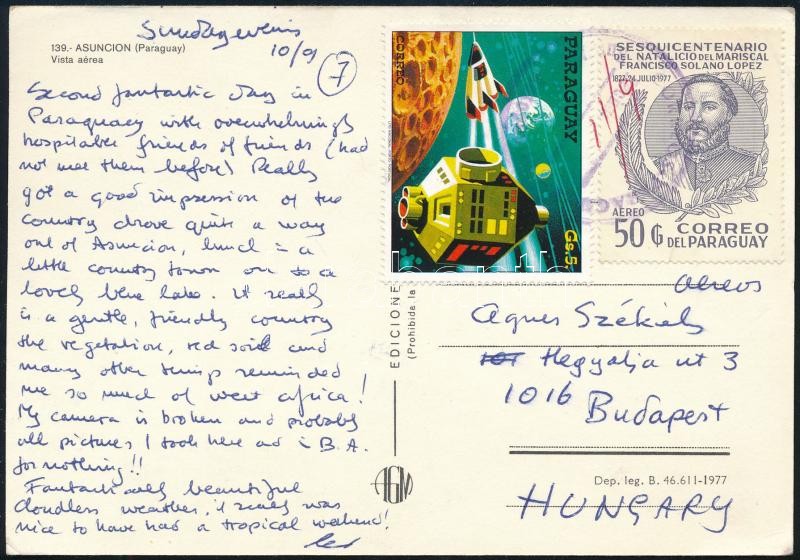 139.- ASUNCION (Paraguay)
Vista aérea
Sunday evening
10/9
7
Second fantastic day in
Paraguay with overwhelmingly
hospitable friends of friends (had
not met them before) Really
got a good impression of the
country drove quite a way
out of Asuncion, lunch in a
little country town on to a
lovely blue lake. It really
is a gentle, friendly country
the vegetation, red soil and
many other things reminded
me so much of west africa!
My camera is broken and probably
all pictures I took here and in B.A.
for nothing!!
Fantastically beautiful
cloudless weather, it really was
nice to have had a tropical weekend!
CORREO
PARAGUAY
Gs.5.
SESQUICENTENARIO
DEL NATALICIO DEL MARISCAL
FRANCISCO SOLANO LOPEZ
1827-24 JULIO-1977
11/9
AEREO
50 G
CORREO
DEL PARAGUAY
EDICIONE
(Prohibida la
aereos
Agnes Székely
Hegyalja ut 3
1016
Budapest
HUNGARY
AGM
Dep. leg. B. 46.611-1977